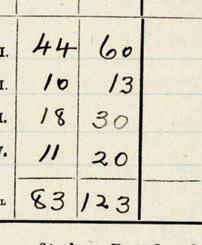 I. 44 60
I. 10 13
I. 18 30
V. 11 20
L 83 123